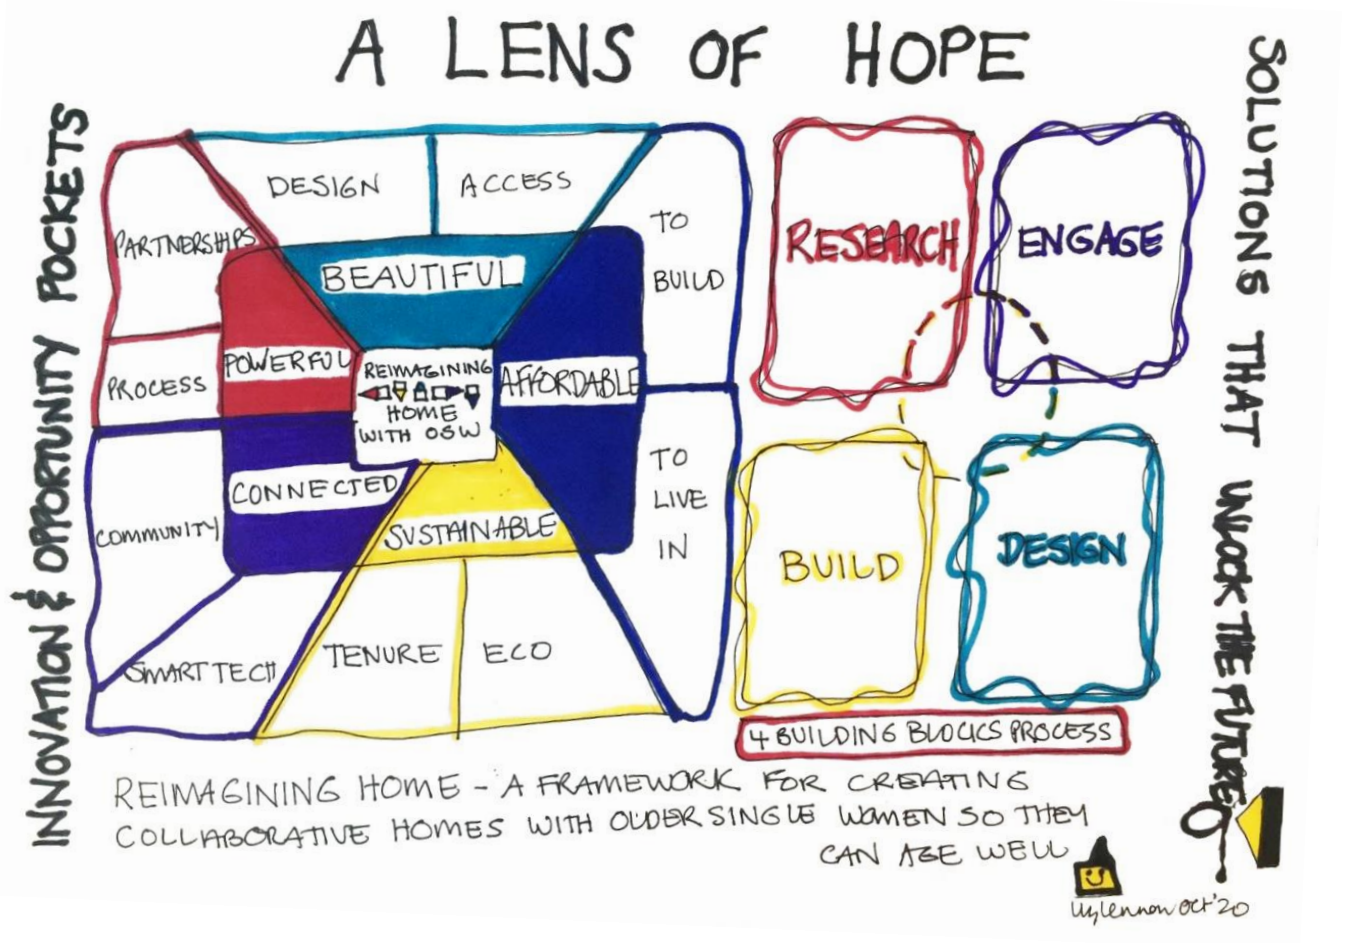 A LENS OF HOPE
INNOVATION & OPPORTUNITY POCKETS
DESIGN
ACCESS
PARTNERSHIPS
PROCESS
BEAUTIFUL
POWERFUL
REIMAGINING
HOME
WITH OSW
AFFORDABLE
TO
BUILD
TO
LIVE
IN
CONNECTED
COMMUNITY
SMART TECH
SUSTAINABLE
TENURE
ECO
RESEARCH
ENGAGE
BUILD
DESIGN
4 BUILDING BLOCKS PROCESS
SOLUTIONS THAT UNLOCK THE FUTURE
REIMAGINING HOME - A FRAMEWORK FOR CREATING
COLLABORATIVE HOMES WITH OLDER SINGLE WOMEN SO THEY
CAN AGE WELL
lennon Oct '20